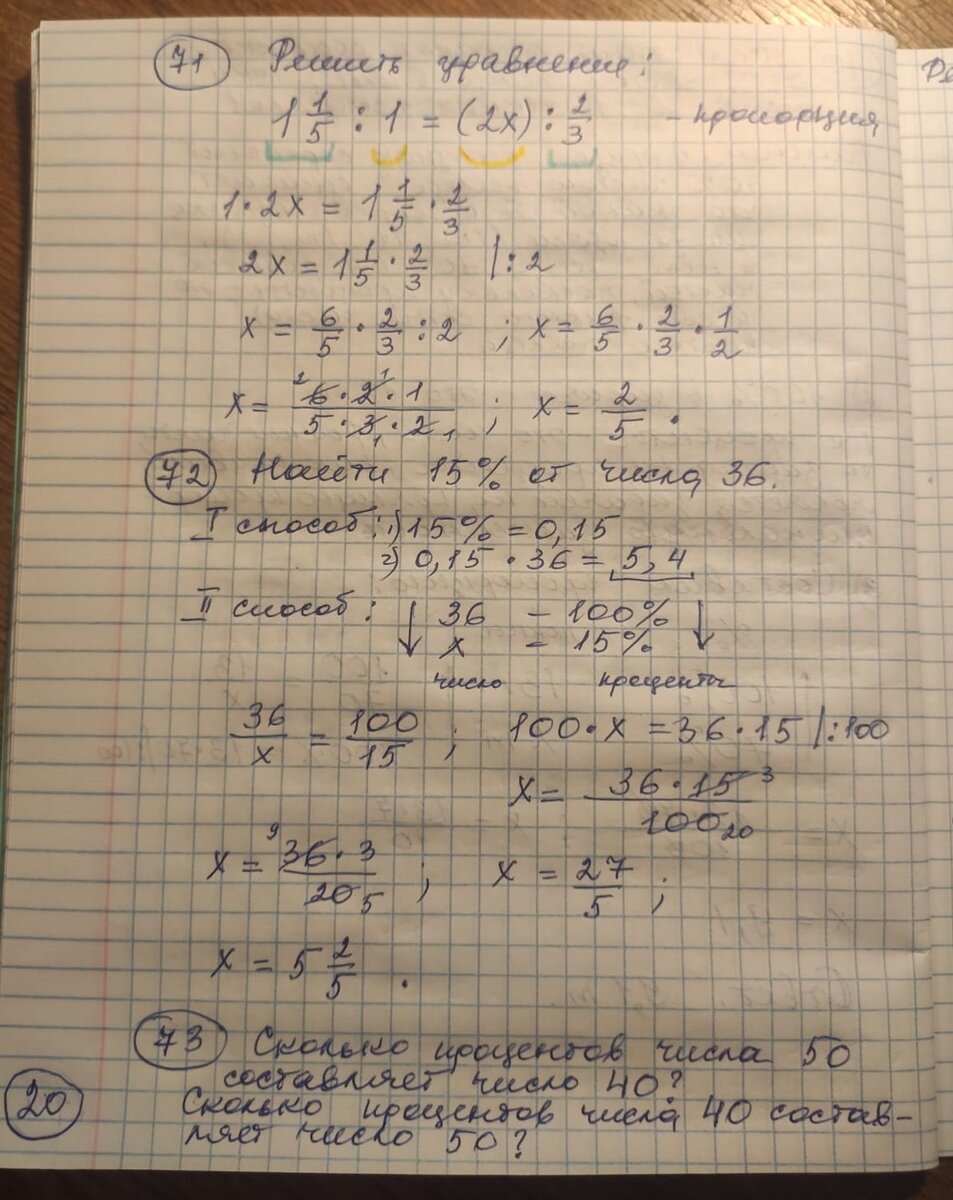 71 Решить уравнение:
1 1/5 : 1 = (2x) : 2/3 - пропорция
1 · 2x = 1 1/5 · 2/3
2x = 1 1/5 · 2/3 |: 2
x = 6/5 · 2/3 : 2 ; x = 6/5 · 2/3 · 1/2
x = 6 · 2 · 1 / 5 · 3 · 2 ; x = 2/5 .
72 Найти 15% от числа 36.
I способ: 1) 15% = 0,15
2) 0,15 · 36 = 5,4
II способ: ↓ 36 - 100% ↓
x - 15%
число проценты
36/x = 100/15 ; 100 · x = 36 · 15 |: 100
x = 36 · 15 3 / 100 20
x = 9 36 · 3 / 20 5 ; x = 27/5 ;
x = 5 2/5 .
73 Сколько процентов числа 50
составляет число 40?
20 Сколько процентов числа 40 состав-
ляет число 50?